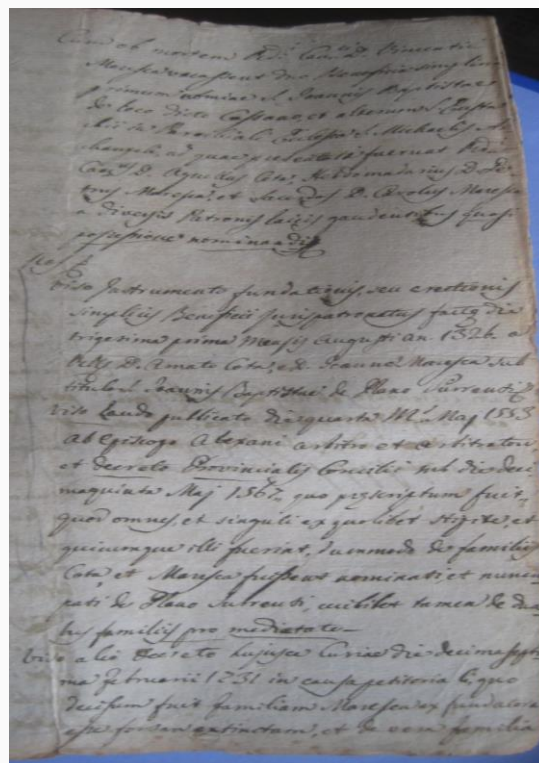 Cum ob mortem Rdi
Maresca vacassent duo Beneficia simplicia
primum nomine S. Joannis Baptistae
de loco dicto Cassano, et alterum S.
in Parochiali Ecclesia S. Michaelis Ar
changeli, ad quae praesentati fuerunt Rdi
D. Cota, Hebdomadarius, D. Pe
trus Maresca, et D. Carolus Maresca
a diversis Patronis laicis gaudentibus quasi
possessione nominandi
Nos
Viso Instrumento fundationis, seu erectionis
simplicis Beneficii jurispatronatus facto die
trigesima prima Mensis Augusti an. 1326 a
D. Amato Cota, et D. Joanne Maresca sub
titulo S. Joannis Baptistae de Plano Surrenti
viso Laudo publicato die quarta Maj 1553
ab Episcopo arbitro et arbitratore
et decreto Provincialis Concilii sub die deci
maquinta Maj 1567, quo praescriptum fuit,
quod omnes, et singuli ex quolibet stipite et
quicumque illi fuerint, dummodo de familiis
Cota, et Maresca fuissent nominati et nuncu
pati de Plano Surrenti, cuilibet tamen de dua
bus familiis pro medietate
Viso alio Decreto hujusce Curiae die decimasepti
ma Februarii 1731 in causa petitoria, quo
decisum fuit familiam Maresca ex fundatore
esse forsan extinctam, et de vera familia